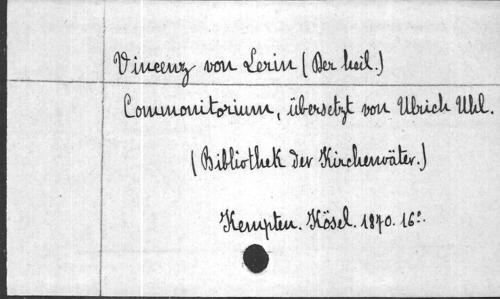 Vincenz von Lerin (Der heil.)
Commonitorium, übersetzt von Ulrich Uhl.
(Bibliothek der Kirchenväter.)
Kempten. Kösel. 1870. 16°.